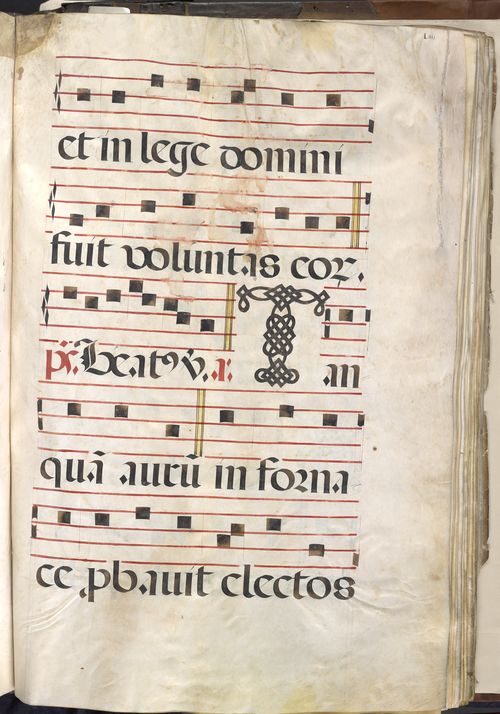 et in lege domini
fuit voluntas eoꝝ.
ps. Beatꝰ v̉. a. Tan
quā aurū in forna
ce ꝓbavit electos